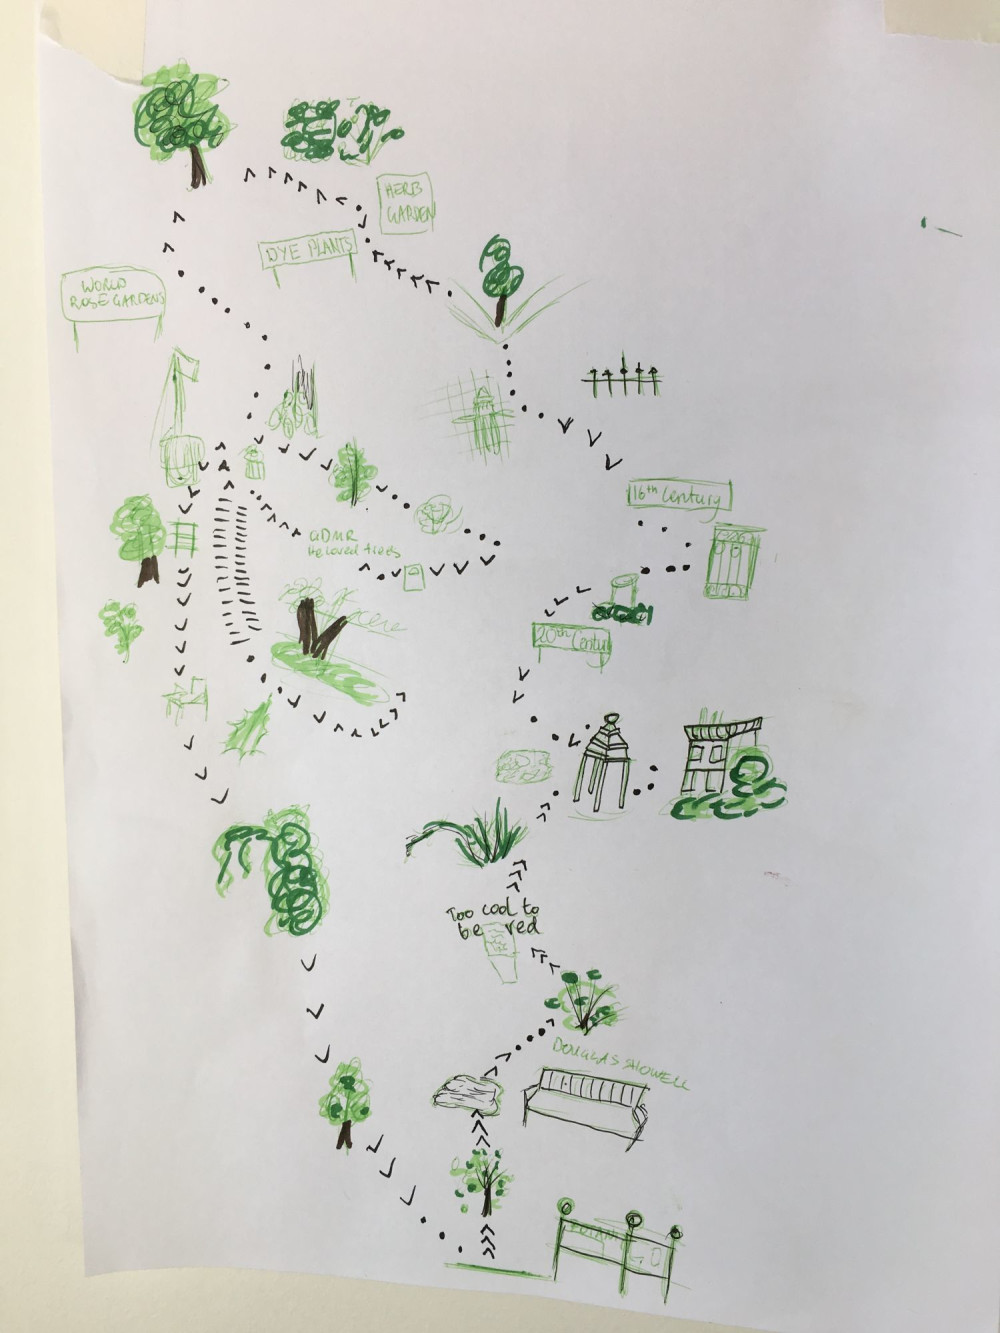 HERB
GARDEN
DYE PLANTS
WORLD
ROSE GARDENS
16th Century
Beloved trees
20th Century
Too cool to
be red
DOUGLAS SHOWELL